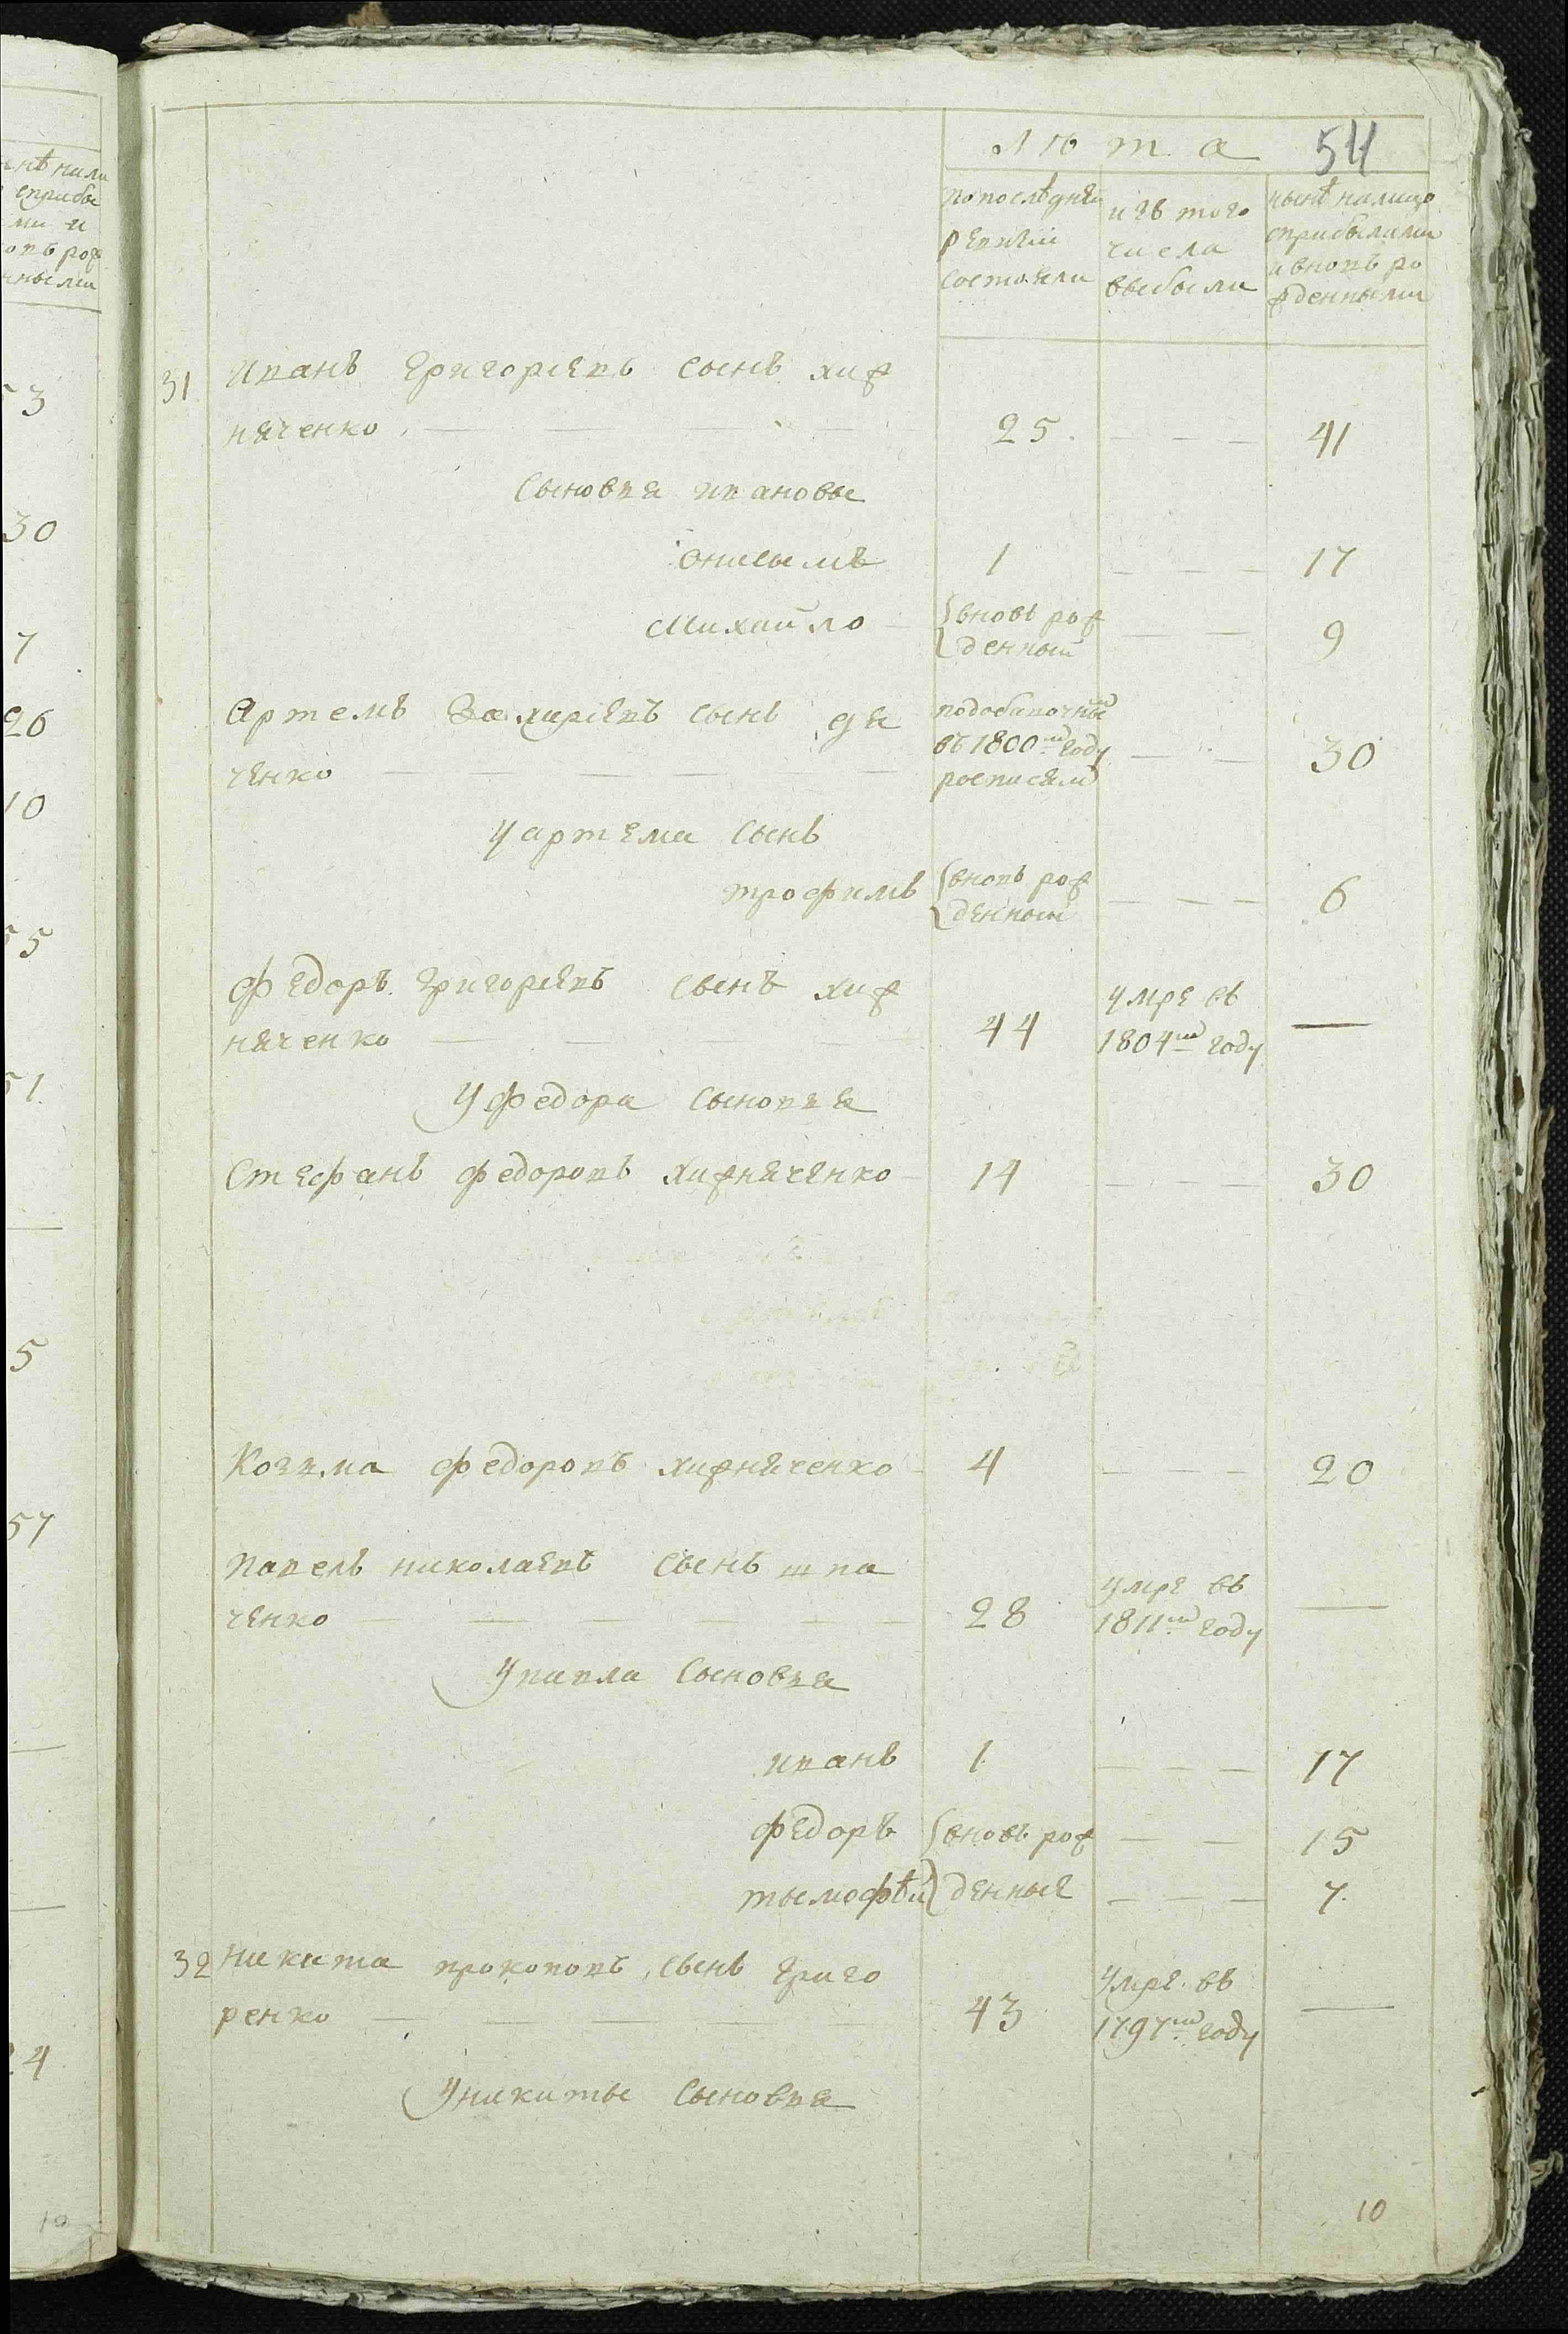 лѣта 54
по послѣдней
ревизіи
состояли
изъ того
числа
выбыли
нынѣ налицо
сприбылими
и вновь ро
жденными
31 Иванъ Григориевъ сынъ хиж
няченко 25 41
Сыновья ивановы
Онисымъ 1 17
Михайло вновь рож
денный 9
Артемъ Захариевъ сынъ дя
ченко
подобавочным
въ 1800м году
росписям
30
у артема сынъ
трофимъ вновь рож
денный 6
Федоръ Григориевъ сынъ хиж
няченко 44
умре въ
1804м году
У федора сыновья
Стефанъ федоровъ хижняченко 14 30
Козма федоровъ хижняченко 4 20
Павелъ николаевъ сынъ шпа
ченко 28
умре въ
1811м году
У павла сыновья
иванъ 1 17
федоръ вновь рож 15
тымофѣй денные 7
32 Никита прокоповъ сынъ григо
ренко 43
умре въ
1797м году
У никиты сыновья
10